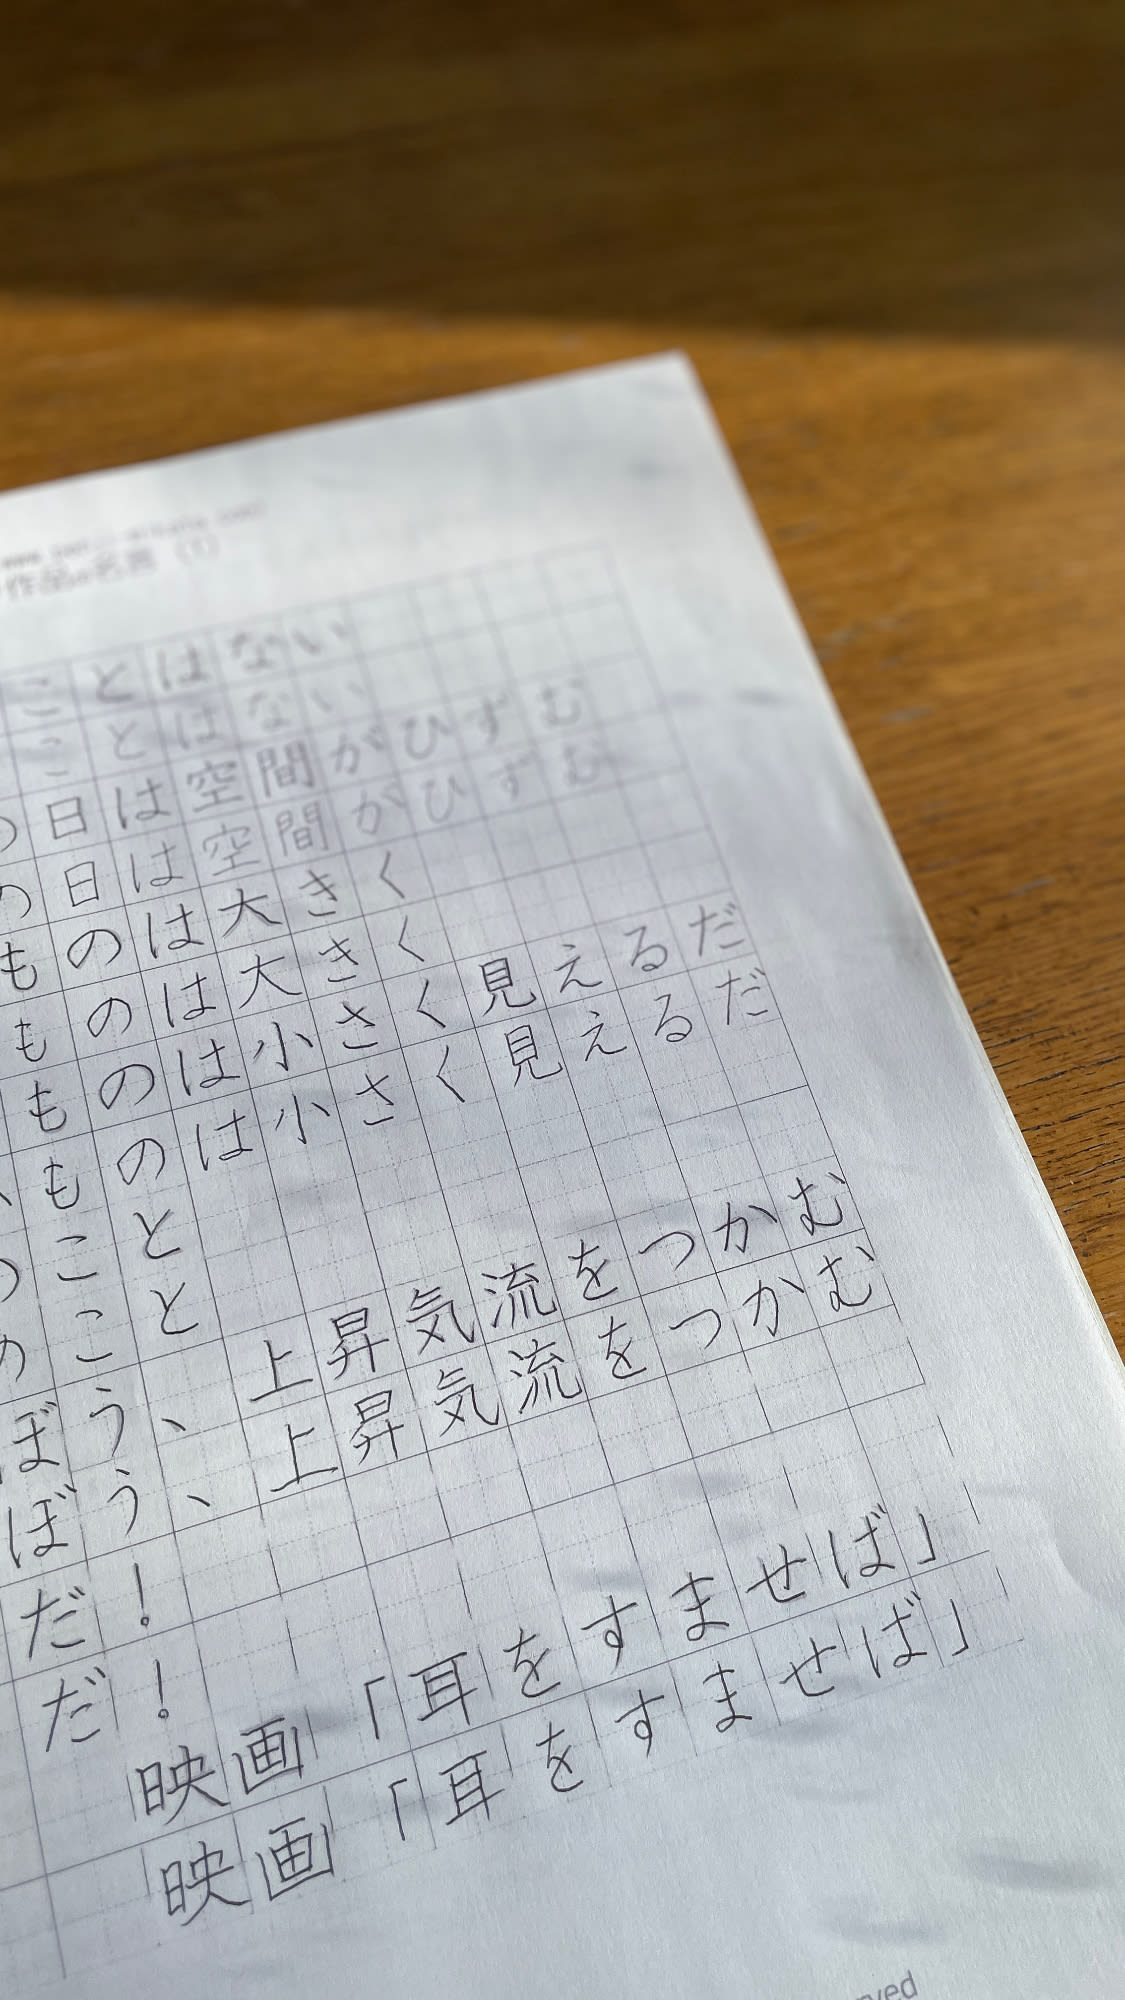 作品の名言 (1)
ことはない
ことはない
日は空間がひずむ
の日は空間がひずむ
ものは大きく
ものは大きく
ものは小さく見えるだ
ものは小さく見えるだ
こと
のこと
ぼう、上昇気流をつかむ
ぼう、上昇気流をつかむ
だ!
だ!
映画「耳をすませば」
映画「耳をすませば」